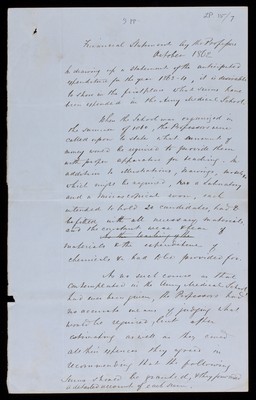 Financial Statement by the Professors
October 1862
In drawing up a statement of the anticipated
expenditure for the year 1863-64, it is desirable
to show in the first place what sums have
been expended in the Army Medical School.
When the School was organized in
the summer of 1860, the Professors were
called upon to state what amount of
money would be required to provide them
with proper apparatus for teaching. In
addition to Illustrations, Drawings, models,
which might be required, a Laboratory
and a Microscopical room, each
intended to hold 20 candidates, had to
be fitted with all necessary materials
and the constant wear & tear of
materials & the expenditure of
chemicals & had to be provided for.
As no such course as that
contemplated in the Army Medical School
had ever been given, the Professors had
no accurate means of judging what
would be required, but after
estimating as well as they could
all their expenses they agreed in
recommending that the following
Sums should be granted, & they furnished
a detailed account of each item.